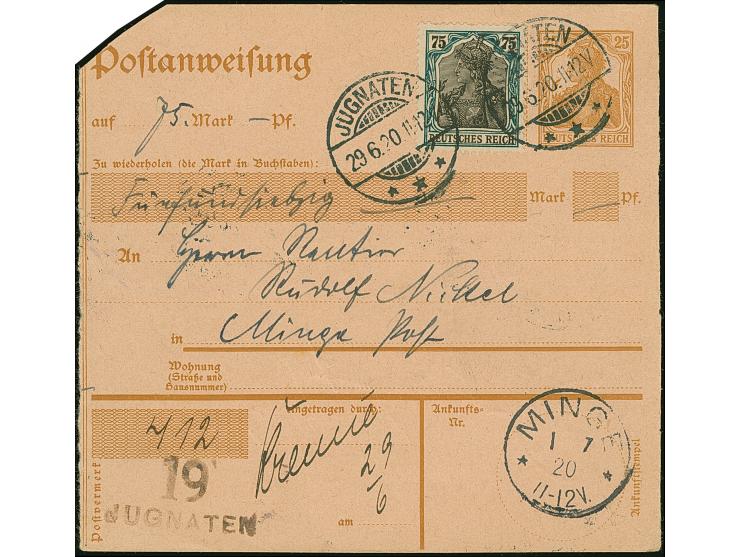 Postanweisung
75 75
DEUTSCHES REICH
25
REICH
JUGNATEN
29.6.20.11-12
20.11-12V.
auf 75. Mark – Pf.
Zu wiederholen (die Mark in Buchstaben):
Fünfundsiebzig Mark — Pf.
An Herrn Rentier
Rudolf Nickel
in Minge Post
Wohnung
(Straße und
Hausnummer)
Postvermerk
412
19
JUGNATEN
Eingetragen durch:
29
6
am
Ankunfts-
Nr.
MINGE
1 7
20
11-12V.
Ankunftstempel